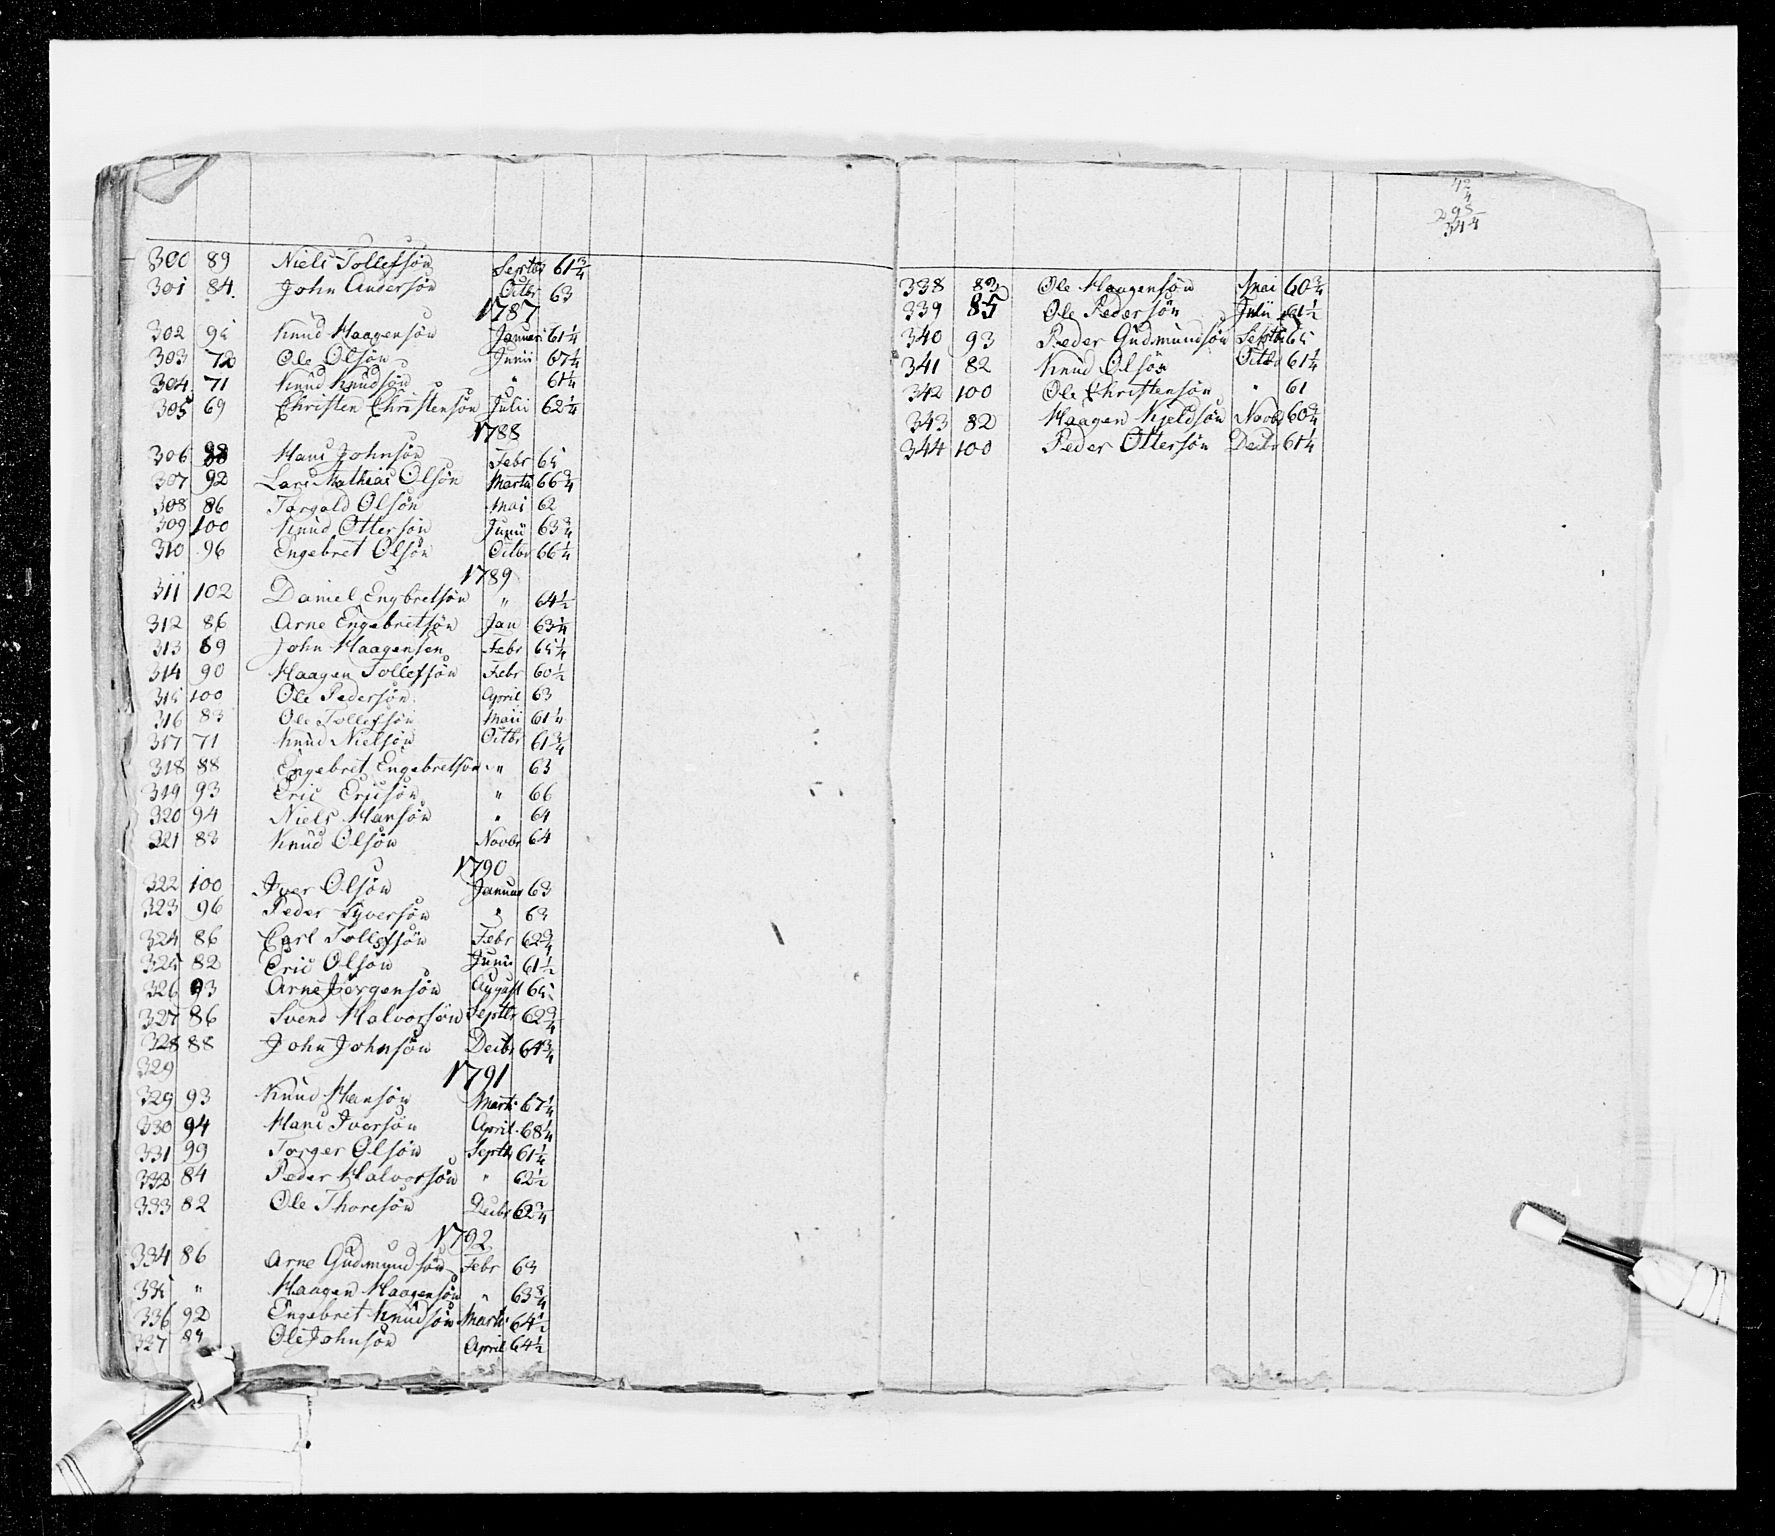 300 89 Niels Tollefsøn Septbr 61 3/4
301 84. John Andersøn Octbr 63
1787
302 95 Knud Haagensøn Januari 61 1/4
303 72 Ole Olsøn Junii 67 1/4
304 71 Knud Knudsøn " 61 1/4
305 69 Christen Christensøn Julii 62 1/4
1788
306 88 Hans Johnsøn Febr 65
307 92 Lars Mathias Olsøn Martii 66 3/4
308 86 Torgold Olsøn Mai 62
309 100 Knud Ottersøn Junii 63 3/4
310 96 Engebret Olsøn Octbr 66 1/4
1789
311 102 Daniel Engbretsøn " 64 1/2
312 86 Arne Engebretsøn Jan 63 1/4
313 89 John Haagensen Febr 65 1/4
314 90 Haagen Tollefsøn Febr 60 1/2
315 100 Ole Pedersøn April 63
316 83 Ole Tollefsøn Maii 61 1/4
317 71 Knud Nielsøn Octbr 61 3/4
318 88 Engebret Engebretsøn " 63
319 93 Eric Ericsøn " 66
320 94 Niels Hansøn " 64
321 83 Knud Olsøn Novbr 64
1790
322 100 Iver Olsøn Januar 63
323 96 Peder Syversøn " 63
324 86 Carl Tollefsøn Febr 62 3/4
325 82 Eric Olsøn Junii 61 1/2
326 93 Arne Jørgensøn August 65
327 86 Svend Halvorsøn Septbr 62 3/4
328 88 John Johnsøn Decbr 64 3/4
329
1791
329 93 Knud Hansøn Marti 67 1/4
330 94 Hans Iversøn April 68 1/4
331 99 Torger Olsøn Septb 61 1/4
332 84 Peder Halvorsøn " 62 1/2
333 82 Ole Thoresøn Decbr 62 3/4
1792
334 86 Arne Gudmundsøn Febr 63
335 " Haagen Haagensøn " 63 3/4
336 92 Engebret Knudsøn Marti 64 1/2
337 83 Ole Johnsøn April 64 1/2
42
4
298
344
338 83 Ole Haagensøn Mai 60 3/4
339 85 Ole Pedersøn Julii 61 1/2
340 93 Peder Gudmundsøn Septbr 65
341 82 Knud Olsøn Octbr 61 1/4
342 100 Ole Christensøn " 61
343 82 Haagen Kjeldsøn Novbr 60 3/4
344 100 Peder Ottersøn Decbr 61 1/4